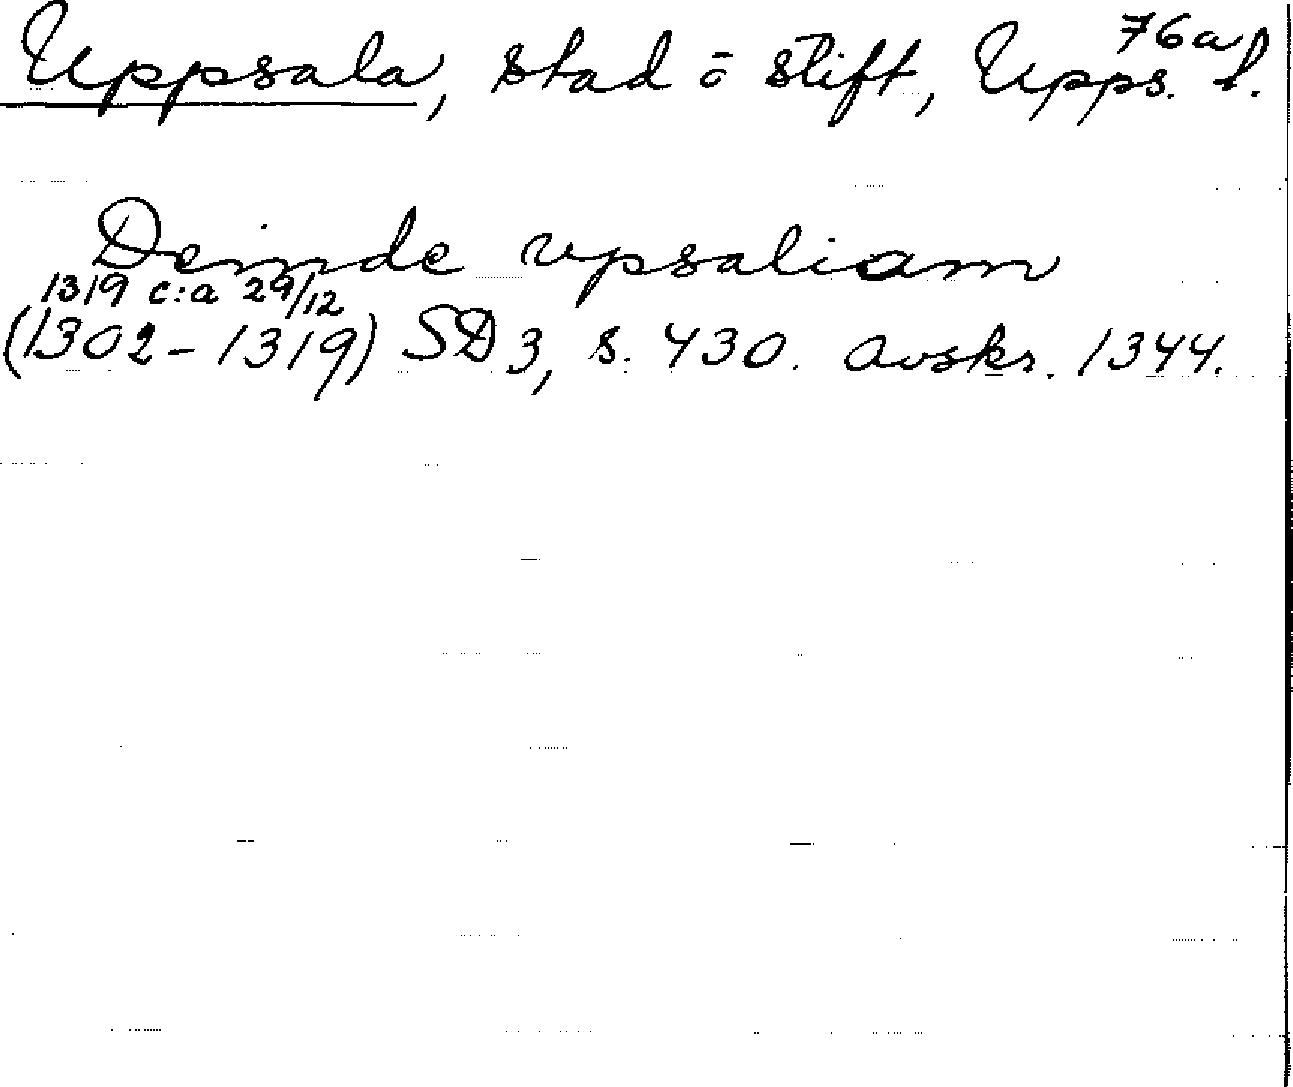 76a
Uppsala, stad o stift, Upps. l.
Deinde vpsaliam
1319 c:a 29/12
(1302-1319) SD 3, s. 430. avskr. 1344.